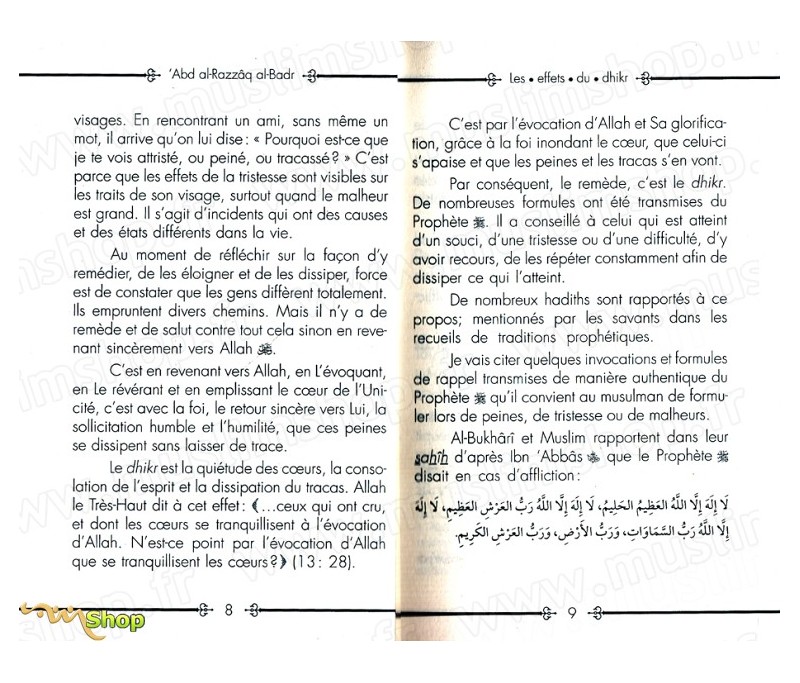 'Abd al-Razzâq al-Badr
visages. En rencontrant un ami, sans même un
mot, il arrive qu'on lui dise : « Pourquoi est-ce que
je te vois attristé, ou peiné, ou tracassé ? » C'est
parce que les effets de la tristesse sont visibles sur
les traits de son visage, surtout quand le malheur
est grand. Il s'agit d'incidents qui ont des causes
et des états différents dans la vie.
Au moment de réfléchir sur la façon d'y
remédier, de les éloigner et de les dissiper, force
est de constater que les gens diffèrent totalement.
Ils empruntent divers chemins. Mais il n'y a de
remède et de salut contre tout cela sinon en reve-
nant sincèrement vers Allah ﷻ.
C'est en revenant vers Allah, en L'évoquant,
en Le révérant et en emplissant le cœur de l'Uni-
cité, c'est avec la foi, le retour sincère vers Lui, la
sollicitation humble et l'humilité, que ces peines
se dissipent sans laisser de trace.
Le dhikr est la quiétude des cœurs, la conso-
lation de l'esprit et la dissipation du tracas. Allah
le Très-Haut dit à cet effet : ﴾…ceux qui ont cru,
et dont les cœurs se tranquillisent à l'évocation
d'Allah. N'est-ce point par l'évocation d'Allah
que se tranquillisent les cœurs ?﴿ (13 : 28).
8
Les • effets • du • dhikr
C'est par l'évocation d'Allah et Sa glorifica-
tion, grâce à la foi inondant le cœur, que celui-ci
s'apaise et que les peines et les tracas s'en vont.
Par conséquent, le remède, c'est le dhikr.
De nombreuses formules ont été transmises du
Prophète ﷺ. Il a conseillé à celui qui est atteint
d'un souci, d'une tristesse ou d'une difficulté, d'y
avoir recours, de les répéter constamment afin de
dissiper ce qui l'atteint.
De nombreux hadiths sont rapportés à ce
propos; mentionnés par les savants dans les
recueils de traditions prophétiques.
Je vais citer quelques invocations et formules
de rappel transmises de manière authentique du
Prophète ﷺ qu'il convient au musulman de formu-
ler lors de peines, de tristesse ou de malheurs.
Al-Bukhârî et Muslim rapportent dans leur
sahîh d'après Ibn 'Abbâs que le Prophète ﷺ
disait en cas d'affliction :
لَا إِلَهَ إِلَّا اللَّهُ العَظِيمُ الحَلِيمُ، لَا إِلَهَ إِلَّا اللَّهُ رَبُّ العَرْشِ العَظِيمِ، لَا إِلَهَ
إِلَّا اللَّهُ رَبُّ السَّمَاوَاتِ، وَرَبُّ الأَرْضِ، وَرَبُّ العَرْشِ الكَرِيمِ.
9
Shop
www.muslimshop.fr